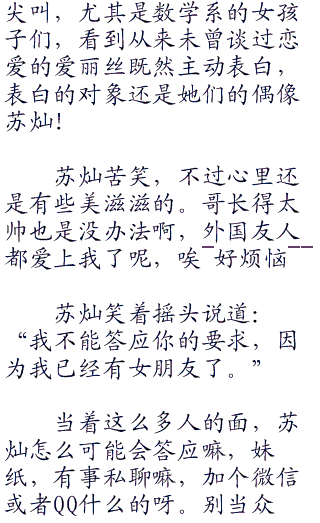 尖叫，尤其是数学系的女孩
子们，看到从来未曾谈过恋
爱的爱丽丝既然主动表白，
表白的对象还是她们的偶像
苏灿！
苏灿苦笑，不过心里还
是有些美滋滋的。哥长得太
帅也是没办法啊，外国友人
都爱上我了呢，唉¯好烦恼¯¯
苏灿笑着摇头说道：
“我不能答应你的要求，因
为我已经有女朋友了。”
当着这么多人的面，苏
灿怎么可能会答应嘛，妹
纸，有事私聊嘛，加个微信
或者QQ什么的呀。别当众